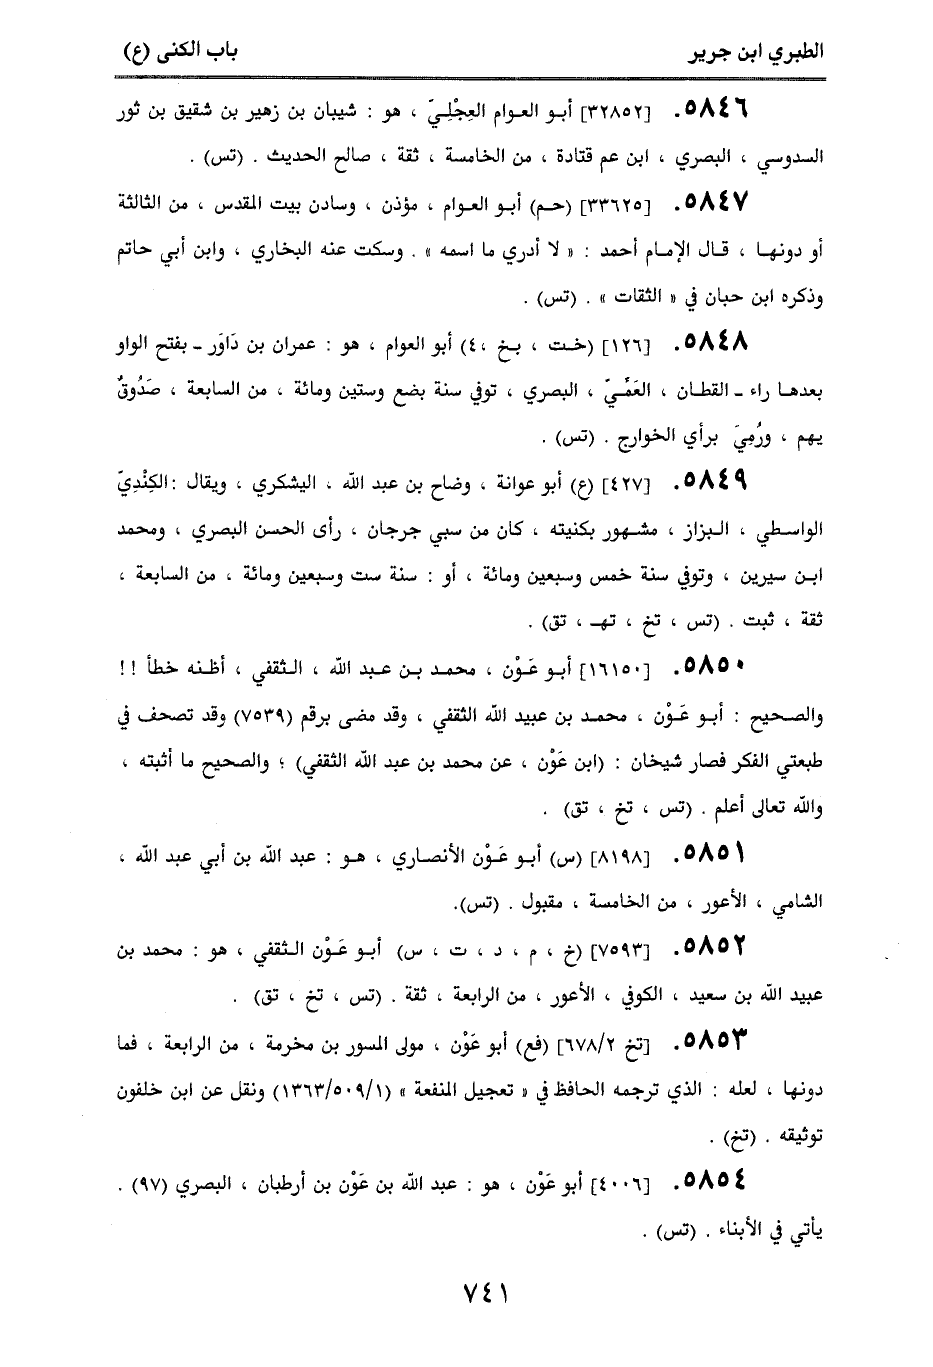 الطبري ابن جرير
باب الكنى (ع)
٥٨٤٦. [٣٢٨٥٢] أبو العوام العِجْلِيّ ، هو : شيبان بن زهير بن شقيق بن ثور
السدوسي ، البصري ، ابن عم قتادة ، من الخامسة ، ثقة ، صالح الحديث . (تس) .
٥٨٤٧. [٣٣٦٢٥] (حم) أبو العوام ، مؤذن ، وسادن بيت المقدس ، من الثالثة
أو دونها ، قال الإمام أحمد : « لا أدري ما اسمه » . وسكت عنه البخاري ، وابن أبي حاتم
وذكره ابن حبان في « الثقات » . (تس) .
٥٨٤٨. [١٢٦] (خت ، بخ ،٤) أبو العوام ، هو : عمران بن دَاوَر ـ بفتح الواو
بعدها راء ـ القطان ، العَمِّيّ ، البصري ، توفي سنة بضع وستين ومائة ، من السابعة ، صَدُوقٌ
يهم ، ورُمِيَ برأي الخوارج . (تس) .
٥٨٤٩. [٤٢٧] (ع) أبو عوانة ، وضاح بن عبد الله ، اليشكري ، ويقال :الكِنْدِيّ
الواسطي ، البزاز ، مشهور بكنيته ، كان من سبي جرجان ، رأى الحسن البصري ، ومحمد
ابن سيرين ، وتوفي سنة خمس وسبعين ومائة ، أو : سنة ست وسبعين ومائة ، من السابعة ،
ثقة ، ثبت . (تس ، تخ ، تهـ ، تق) .
٥٨٥٠. [١٦١٥٠] أبو عَوْن ، محمد بن عبد الله ، الثقفي ، أظنه خطأ !!
والصحيح : أبو عَوْن ، محمد بن عبيد الله الثقفي ، وقد مضى برقم (٧٥٣٩) وقد تصحف في
طبعتي الفكر فصار شيخان : (ابن عَوْن ، عن محمد بن عبد الله الثقفي) ؛ والصحيح ما أثبته ،
والله تعالى أعلم . (تس ، تخ ، تق) .
٥٨٥١. [٨١٩٨] (س) أبو عَوْن الأنصاري ، هو : عبد الله بن أبي عبد الله ،
الشامي ، الأعور ، من الخامسة ، مقبول . (تس).
٥٨٥٢. [٧٥٩٣] (خ ، م ، د ، ت ، س) أبو عَوْن الثقفي ، هو : محمد بن
عبيد الله بن سعيد ، الكوفي ، الأعور ، من الرابعة ، ثقة . (تس ، تخ ، تق) .
٥٨٥٣. [تخ ٦٧٨/٢] (فع) أبو عَوْن ، مولى المسور بن مخرمة ، من الرابعة ، فما
دونها ، لعله : الذي ترجمه الحافظ في « تعجيل المنفعة » (١٣٦٣/٥٠٩/١) ونقل عن ابن خلفون
توثيقه . (تخ) .
٥٨٥٤. [٤٠٠٦] أبو عَوْن ، هو : عبد الله بن عَوْن بن أرطبان ، البصري (٩٧) .
يأتي في الأبناء . (تس) .
٧٤١